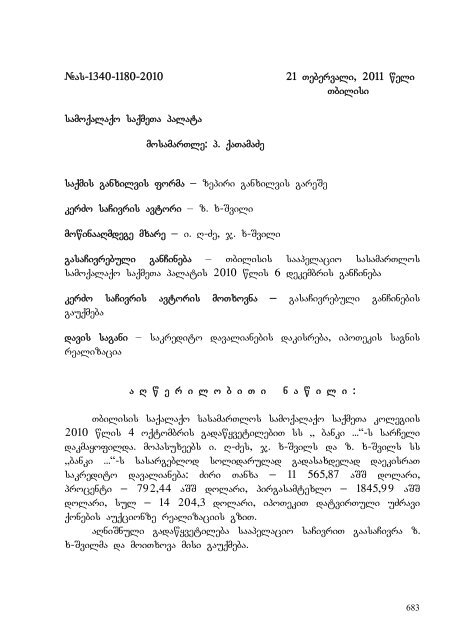 №ას-1340-1180-2010 21 თებერვალი, 2011 წელი
თბილისი
სამოქალაქო საქმეთა პალატა
მოსამართლე: პ. ქათამაძე
საქმის განხილვის ფორმა – ზეპირი განხილვის გარეშე
კერძო საჩივრის ავტორი – ზ. ხ-შვილი
მოწინააღმდეგე მხარე – ი. ღ-ძე, ჯ. ხ-შვილი
გასაჩივრებული განჩინება – თბილისის სააპელაციო სასამართლოს
სამოქალაქო საქმეთა პალატის 2010 წლის 6 დეკემბრის განჩინება
კერძო საჩივრის ავტორის მოთხოვნა – გასაჩივრებული განჩინების
გაუქმება
დავის საგანი – საკრედიტო დავალიანების დაკისრება, იპოთეკის საგნის
რეალიზაცია
ა ღ წ ე რ ი ლ ო ბ ი თ ი ნ ა წ ი ლ ი :
თბილისის საქალაქო სასამართლოს სამოქალაქო საქმეთა კოლეგიის
2010 წლის 4 ოქტომბრის გადაწყვეტილებით სს „ ბანკი ...“-ს სარჩელი
დაკმაყოფილდა. მოპასუხეებს ი. ღ-ძეს, ჯ. ხ-შვილს და ზ. ხ-შვილს სს
„ბანკი ...“-ს სასარგებლოდ სოლიდარულად გადასახდელად დაეკისრათ
საკრედიტო დავალიანება: ძირი თანხა – 11 565,87 აშშ დოლარი,
პროცენტი – 792,44 აშშ დოლარი, პირგასამტეხლო – 1845,99 აშშ
დოლარი, სულ – 14 204,3 დოლარი, იპოთეკით დატვირთული უძრავი
ქონების აუქციონზე რეალიზაციის გზით.
აღნიშნული გადაწყვეტილება სააპელაციო საჩივრით გაასაჩივრა ზ.
ხ-შვილმა და მოითხოვა მისი გაუქმება.
683